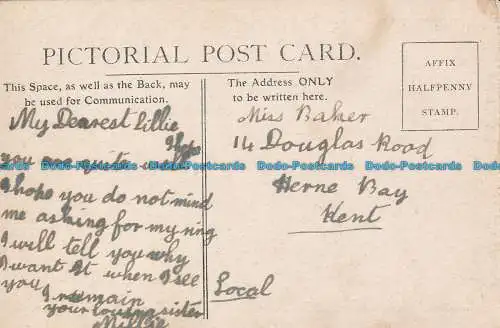 PICTORIAL POST CARD.
This Space, as well as the Back, may
be used for Communication.
The Address ONLY
to be written here.
AFFIX
HALFPENNY
STAMP.
My Dearest Lillie
I hope
you are quite well
I hope you do not mind
me asking for my ring
I will tell you why
I want it when I see
you
I remain
your loving sister
Millie
Miss Baker
14 Douglas Road
Herne Bay
Kent
Local
Dodo-Postcards Dodo-Postcards Dodo-Postcards Dodo-Postcards Dodo-Postcards